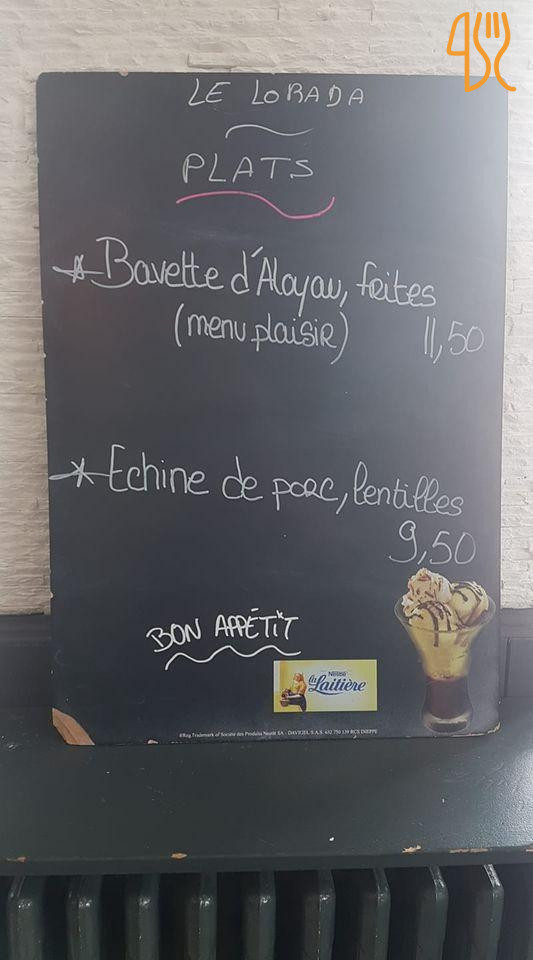 LE LORADA
PLATS
Bavette d'Aloyau, frites
(menu plaisir) 11,50
Echine de porc, lentilles
9,50
BON APPÉTIT
Nestlé
la Laitière
®Reg. Trademark of Société des Produits Nestlé SA - DAVIGEL S.A.S. 632 750 139 RCS DIEPPE